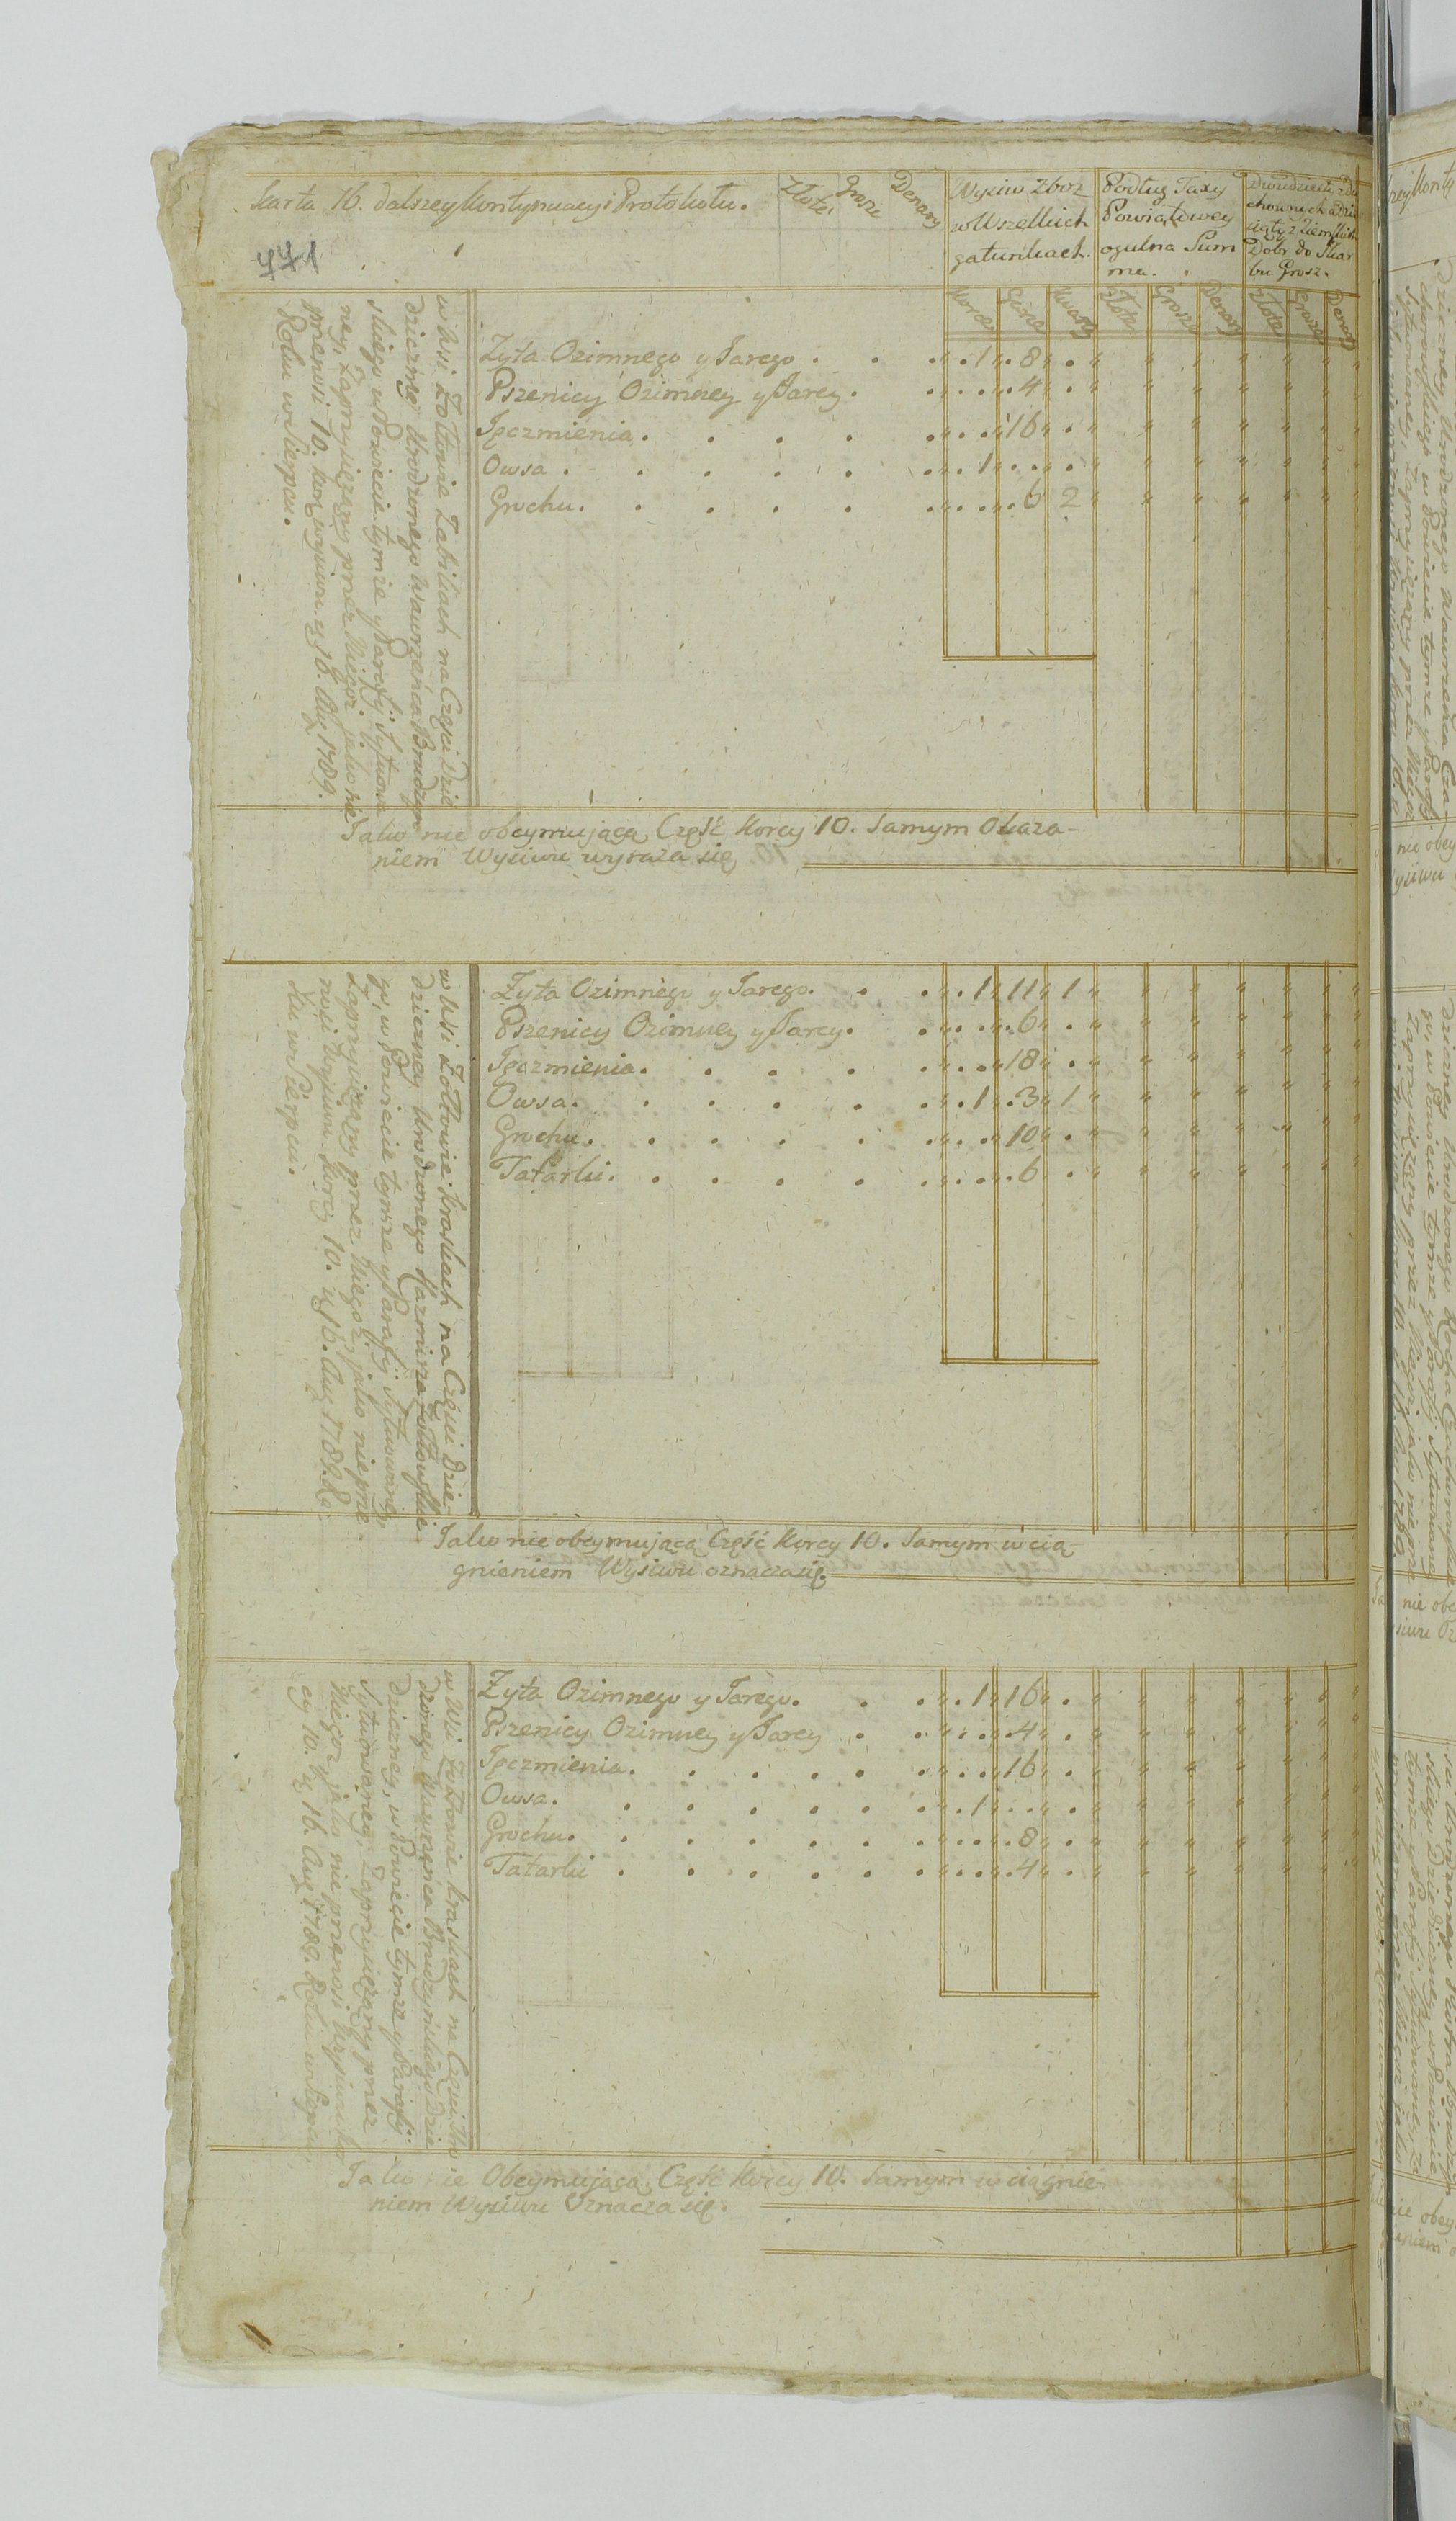 Karta 16. dalszey Kontynuacyi Protokołu.
Złote. Grosze Denary
Wysiew Zboż
w Wszelkich
gatunkach.
Podług Taxy
Powiatowey
ogulna Sum
ma.
Dobr do Skar
bu Grosz.
771
Korce Garce Kwarty Złote Grosze Denary Złote Grosze Denary
w Wsi Żółtowie Żabikach na Części Dzie
dziczney Urodzonego Wawrzeńca Brudzyń
skiego w Powiecie tymze y Parafij Sytuowa
ney, Zaprzysiężony przez Niegoż jako nie
przenosi 10. Kor. wysiewu. dż 16. Aug. 1789.
Roku w Sierpcu.
Żyta Ozimnego y Jarego . . . 1 8 .
Pszenicy Ozimney y Jarey . . . 4 .
Jęczmienia . . . . . 16 .
Owsa . . . . . . 1 . .
Grochu . . . . . . 6 2
Jako nie obeymującą Część Korcy 10. Samym Okaza-
niem Wysiewu wyraza się
w Wsi Żółtowie Kraskach na Części Dzie-
dziczney Urodzonego Kazmirza Żółtowskie-
go, w Powiecie tymże y Parafij Sytuowaney,
Zaprzysiężony przez Niegoż, jako nieprze-
nosi Wysiewu Korcy 10. dż 16. Aug. 1789. Ro-
ku w Sierpcu.
Żyta Ozimnego y Jarego . . . 1 11 1
Pszenicy Ozimney y Jarey . . . 6 .
Jęczmienia . . . . . 18 .
Owsa . . . . . . 1 3 1
Grochu . . . . . 10 .
Tatarki . . . . . 6 .
Jako nie obeymującą Część Korcy 10. Samym wcią-
gnieniem Wysiewu oznacza się.
w Wsi Żółtowie Kraskach na Części Uro
dzonego Wawrzeńca Brudzyńskiego Dzie
dziczney, w Powiecie tymże y Parafij
Sytuowaney. Zaprzysiężony przez
Niegoż jako nie przenosi Wysiewu Kor
cy 10. dż 16. Aug. 1789. Roku w Sierpcu
Żyta Ozimnego y Jarego . . . 1 16 .
Pszenicy Ozimney y Jarey . . . 4 .
Jęczmienia . . . . . 16 .
Owsa . . . . . . 1 . .
Grochu . . . . . . 8 .
Tatarki . . . . . . 4 .
Jako nie Obeymującą Część Korcy 10. Samym wciągnie-
niem Wysiewu Oznacza się.